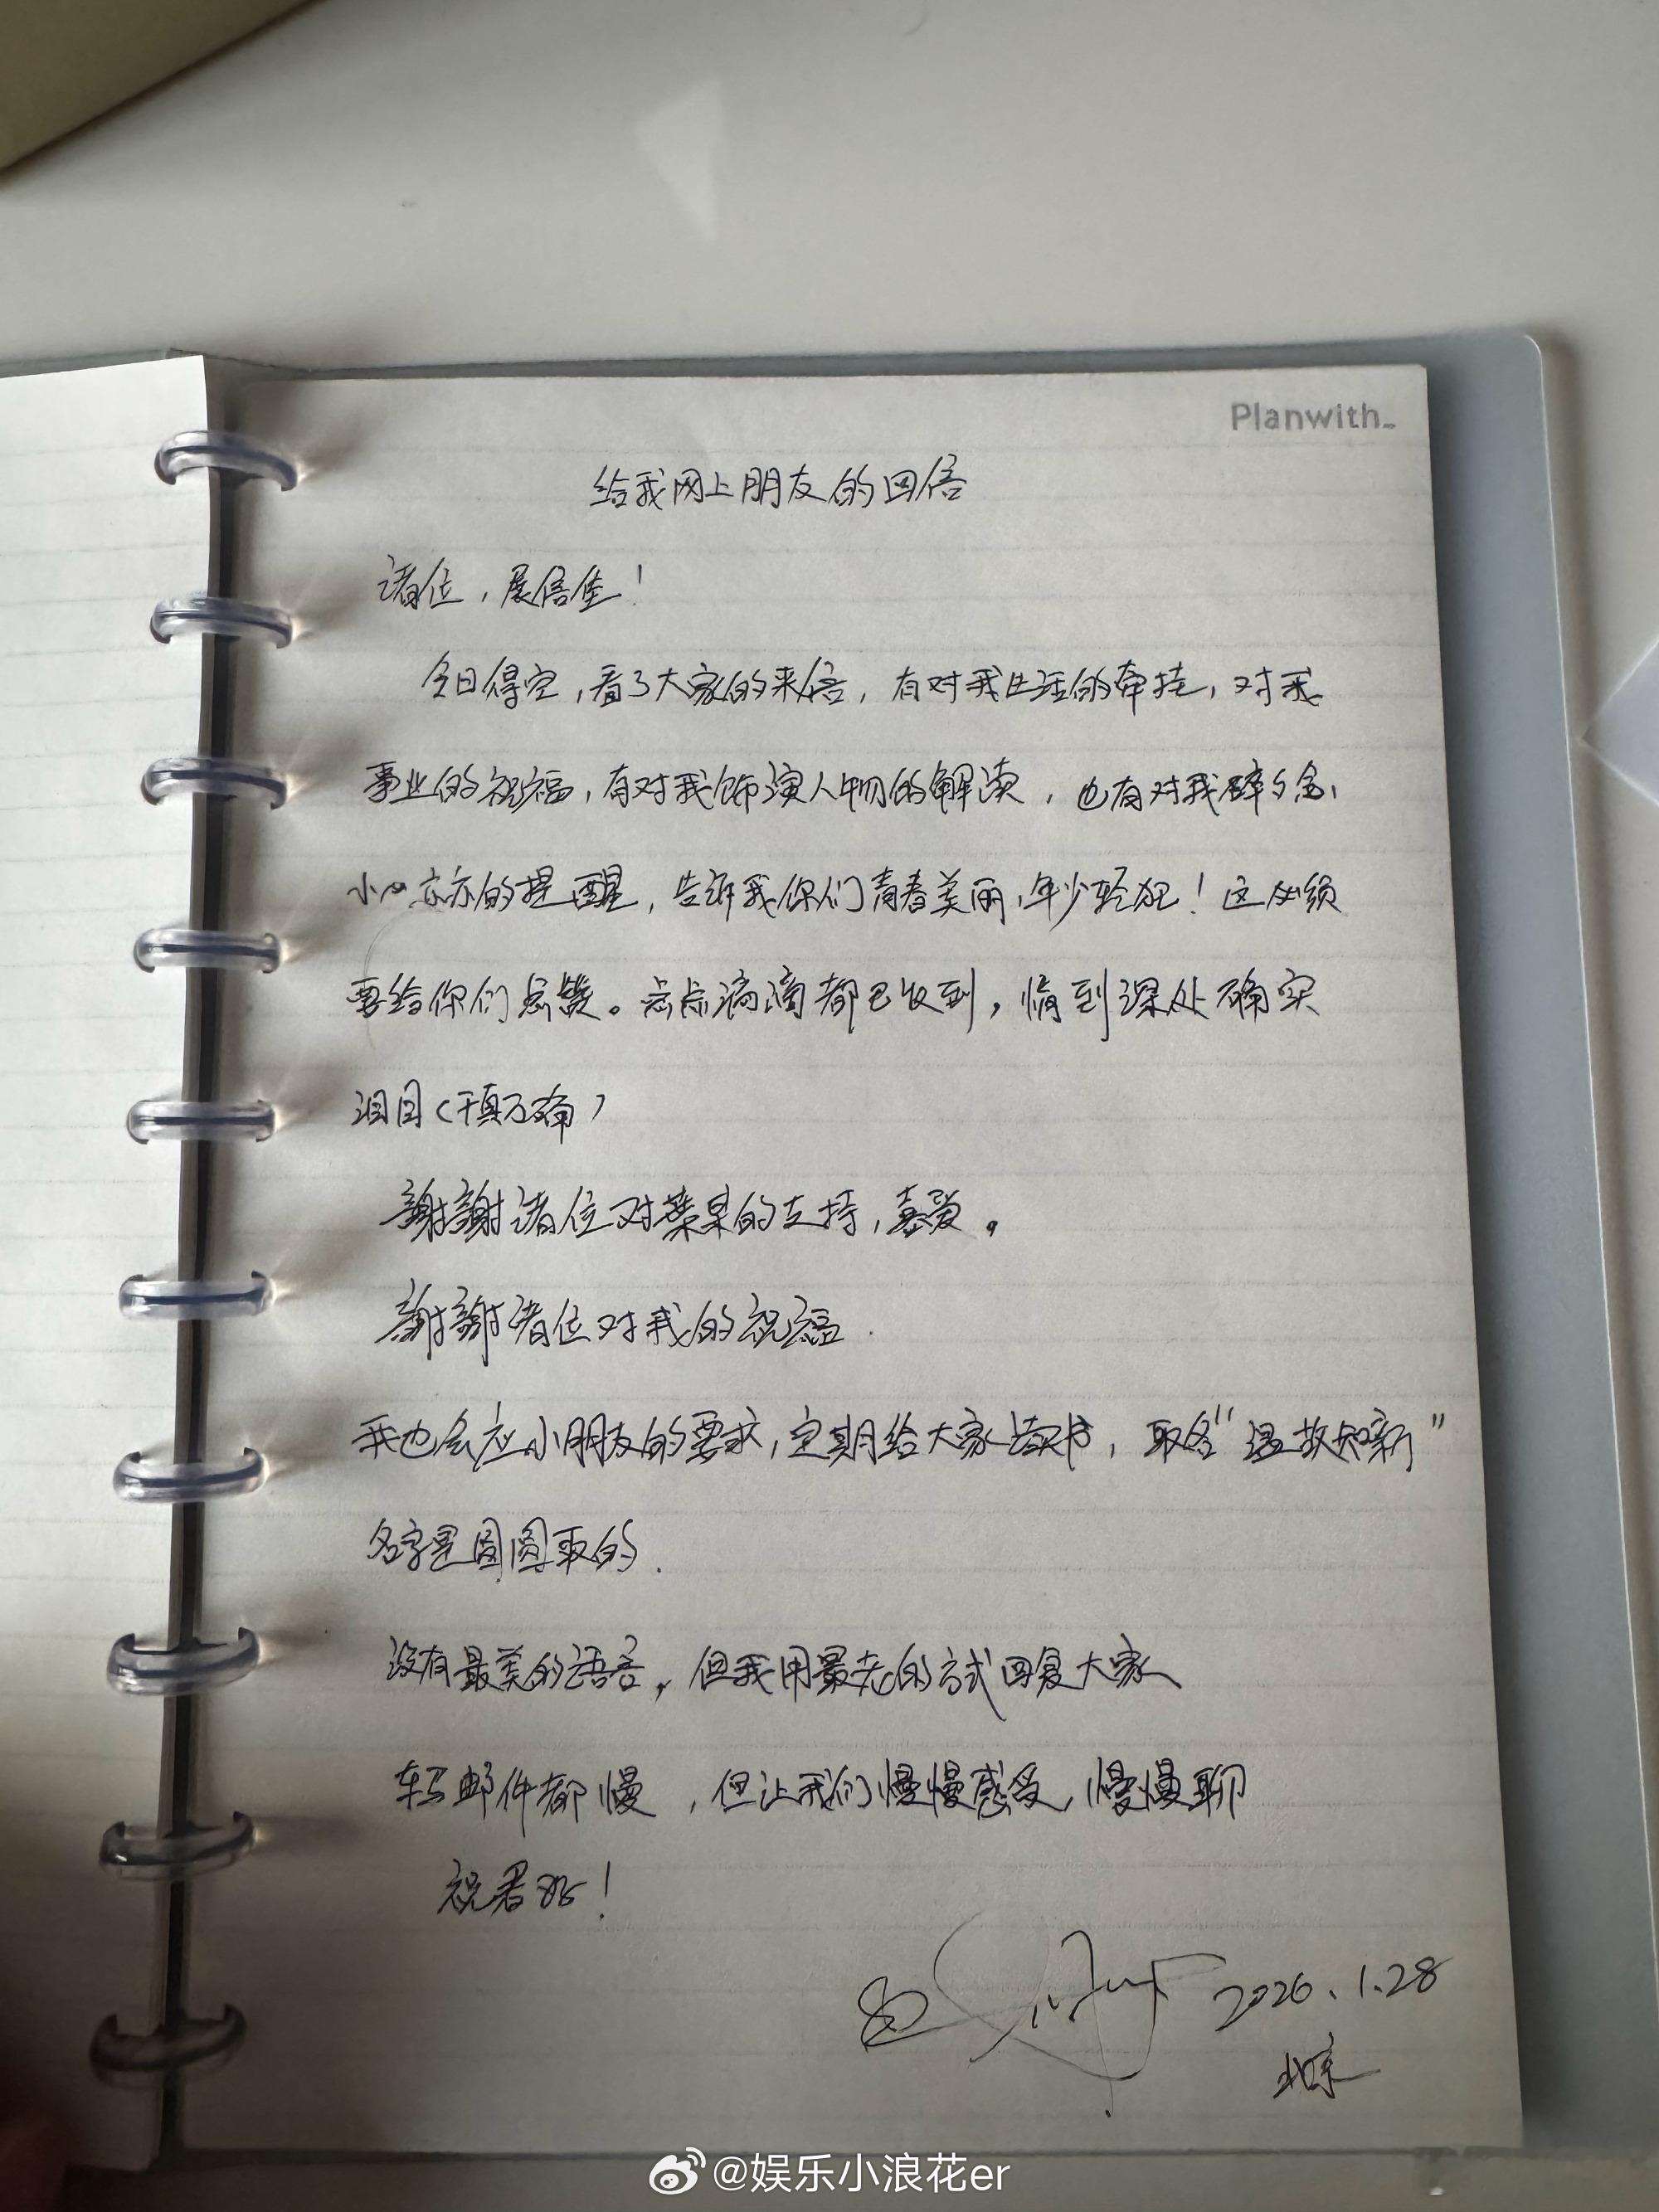 Planwith
给我网上朋友的回信
诸位，展信佳！
今日得空，看了大家的来信，有对我生活的牵挂，对我
事业的祝福，有对我饰演人物的解读，也有对我碎碎念，
小心亦亦的提醒，告诉我你们青春美丽，年少轻狂！这必须
要给你们点赞。点点滴滴都已收到，情到深处确实
泪目（千真万确）
謝謝诸位对葉某的支持，喜爱。
謝謝诸位对我的祝福.
我也会应小朋友的要求，定期给大家读书，取名“温故知新”
名字是圆圆取的.
没有最美的语言，但我用最老的方式回复大家
车马邮件都慢，但让我们慢慢感受，慢慢聊
祝君好！
2026.1.28
北京
@娱乐小浪花er